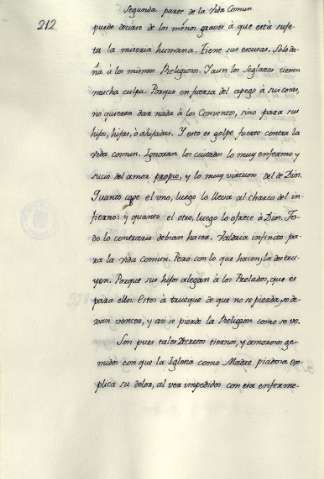 Segunda parte de la Vida Comun
212
puede decirse de los menos graves à que està suje-
ta la miseria humana. Tiene sus escusas. Solo da-
ña à los mismos Religiosos. Y aun los Seglares tienen
mucha culpa. Porque en fuerza del apego à sus cosas,
no quieren dar nada à los Conventos, sino para sus
hijos, hijas, ò ahijadas. Y esto es golpe fuerte contra la
vida comun. Ignoran los cuitados lo mucho enfermo y
sucio del amor propio, y lo muy virtuoso del de Dios.
Quanto coge el uno, luego lo lleva al charco del in-
fierno: y quanto el otro, luego lo ofrece à Dios. To-
do lo contrario debian hacer. Valdria infinito pa-
ra la vida comun. Pero con lo que hacen, la destru-
yen. Porque sus hijos alegan à los Prelados, que es
para ellos. Estos à trueque de que no se pierda, se de-
xan vencer, y asi se pierde la Religion como se vè.
Son pues tales Decretos tiernos, y amorosos ge-
midos con que la Iglesia como Madre piadosa ex-
plica su dolor, al ver impedidos con esa enferme-